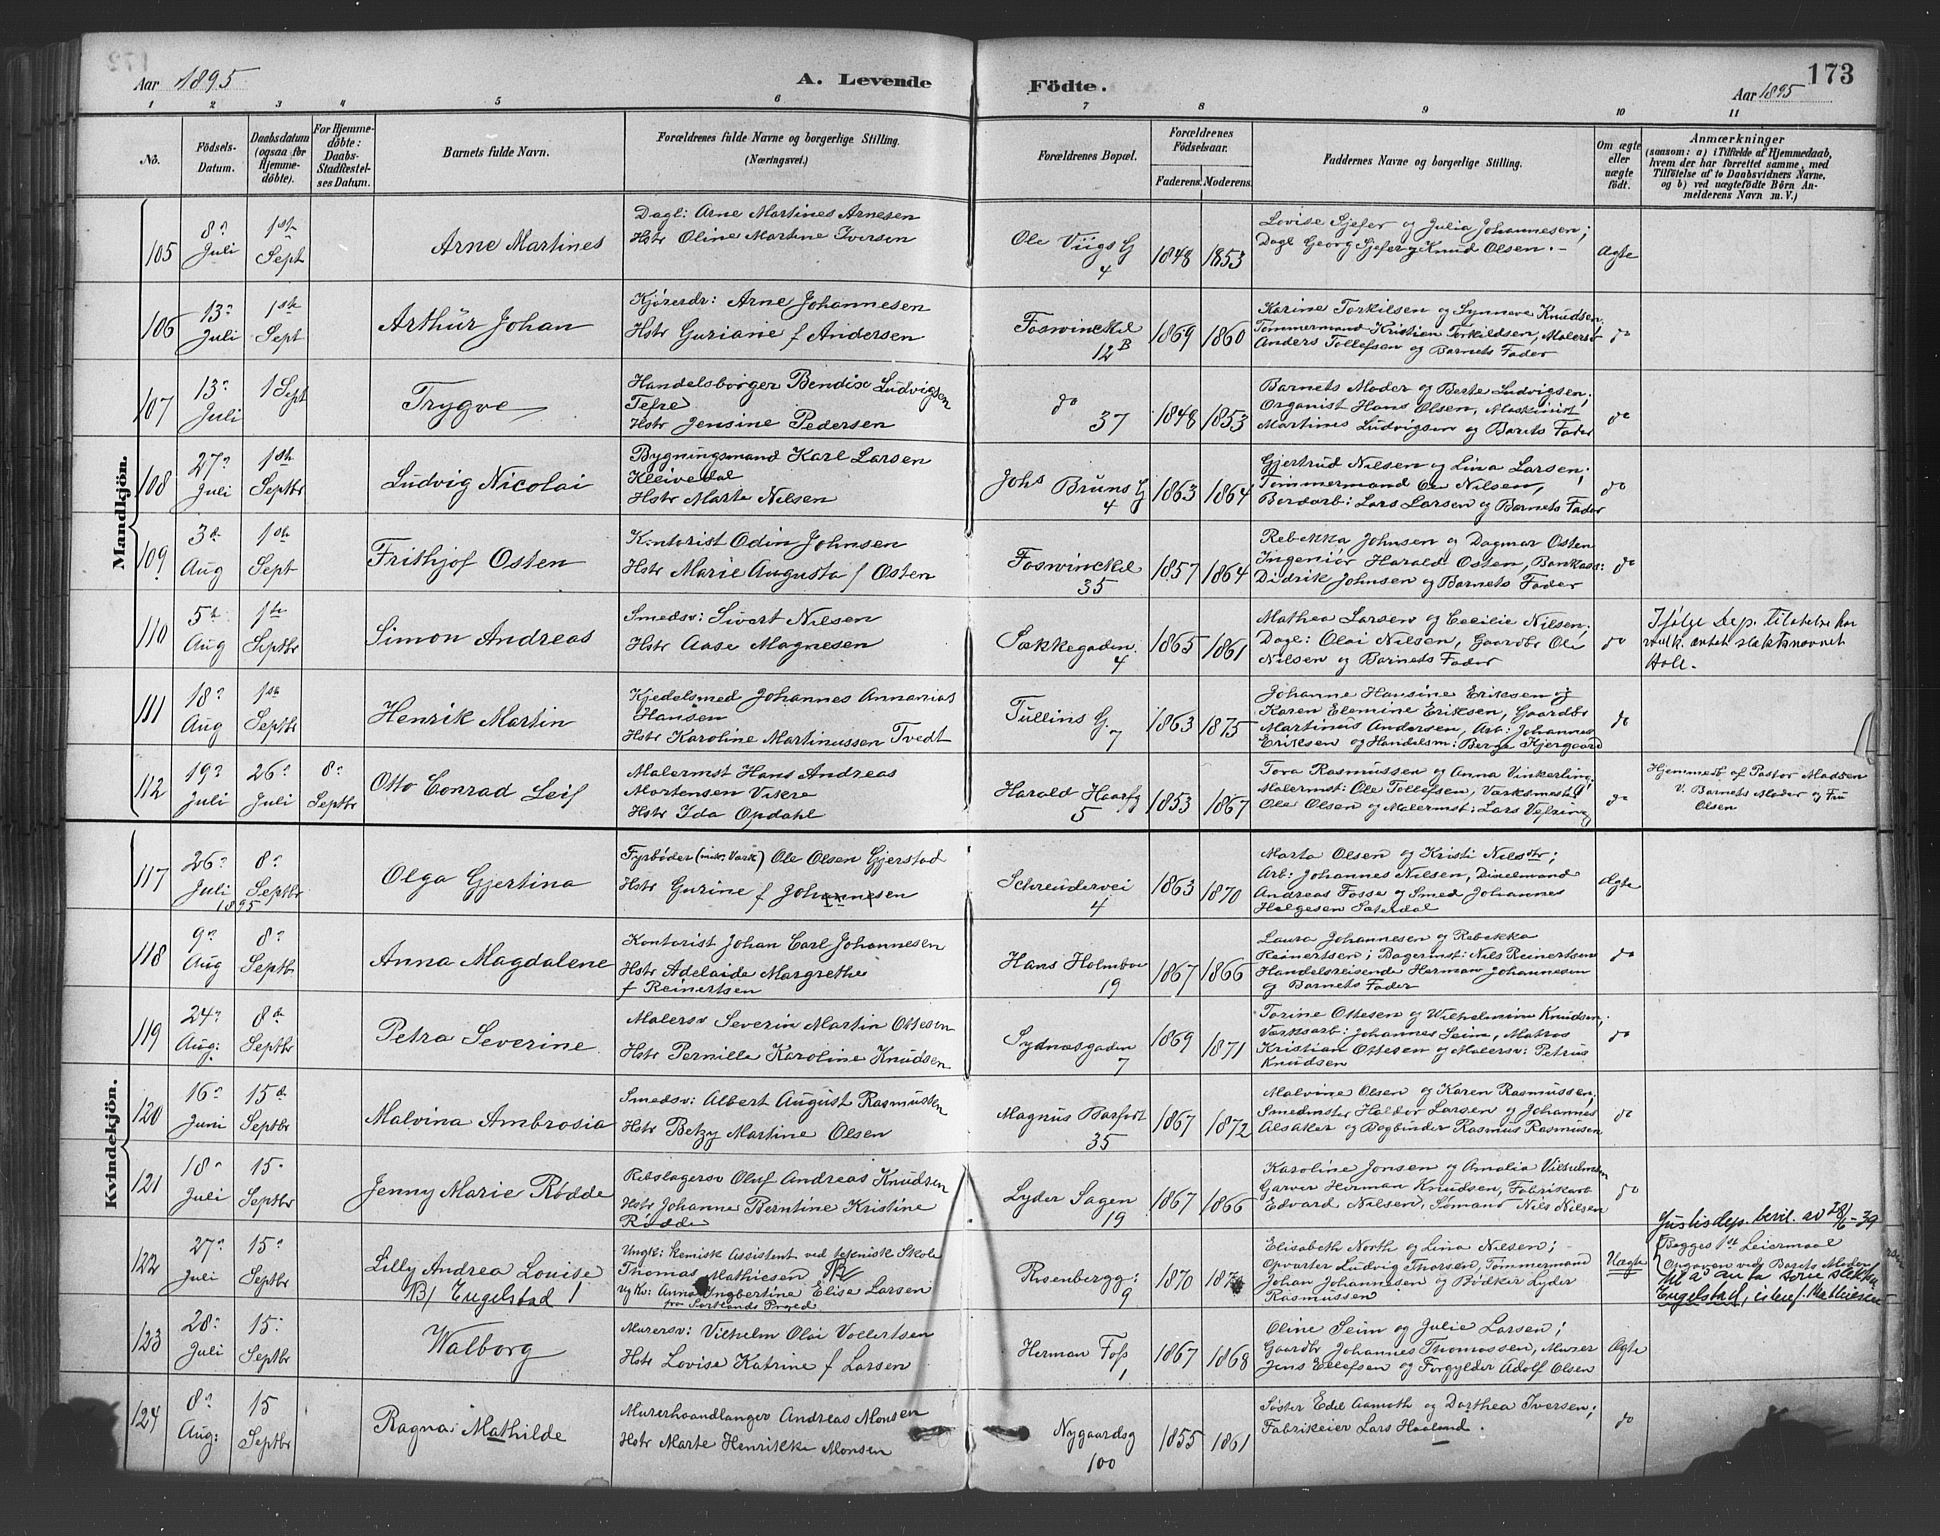 Aar 1895
A. Levende
Födte.
Aar 1895
173
1 2 3 4 5 6 7 8 9 10 11
No.
Födsels-
Datum.
Daabsdatum
(ogsaa for
Hjemme-
döbte).
For Hjemme-
döbte:
Daabs-
Stadfæstel-
ses Datum.
Barnets fulde Navn.
Forældrenes fulde Navne og borgerlige Stilling.
(Næringsvei.)
Forældrenes Bopæl.
Forældrenes
Födselsaar.
Faderens. Moderens.
Faddernes Navne og borgerlige Stilling.
Om ægte
eller
uægte
födt.
Anmærkninger
(saasom: a) i Tilfælde af Hjemmedaab,
hvem der har forrettet samme, med
Tilföielse af to Daabsvidners Navne,
og b) ved uægtefödte Börn An-
melderens Navn m. V.)
Mandkjön.
105
8de Juli
1ste Sept
Arne Martines
Dagl: Arne Martines Arnesen
Hstr Oline Martine Iversen
Ole Viigs G
4
1848 1853
Lovise Sjefer og Julia Johannesen;
Dagl Georg Sjefer og Knud Olsen. -
Ægte
106
13de Juli
1ste Sept
Arthur Johan
Kjøresdr: Arne Johannesen
Hstr Guriane f Andersen
Foswinckel
12B
1869 1860
Karine Torkilsen og Synneve Knudsen,
Tømmermand Kristian Torkildsen, Malersv
Anders Tollefsen og Barnets Fader
do
107
13de Juli
1 Sept
Trygve
Handelsborger Bendix Ludvigsen
Tefre
Hstr Jensine Pedersen
do
37
1848 1853
Barnets Moder og Berte Ludvigsen;
Organist Hans Olsen, Maskinist
Martines Ludvigsen og Barnets Fader
do
108
27de Juli
1ste Septbr
Ludvig Nicolai
Bygningsmand Karl Larsen
Kleivedal
Hstr Marte Nilsen
Johs Bruns G
4
1863 1864
Gjertrud Nilsen og Lina Larsen;
Tømmermand Ole Nilsen,
Bordarb: Lars Larsen og Barnets Fader
do
109
3de Aug
1ste Sept
Frithjof Osten
Kontorist Odin Johnsen
Hstr Marie Augusta f Osten
Foswinckel
35
1857 1864
Rebekka Johnsen og Dagmar Osten
Ingeniør Harald Osten, Bankass:
Didrik Johnsen og Barnets Fader
do
110
5te Aug
1ste Septbr
Simon Andreas
Smedsv: Sivert Nilsen
Hstr Aase Magnesen
Sækkegaden
4
1865 1861
Mathea Larsen og Cecilie Nilsen;
Dagl: Olai Nilsen, Gaardbr Ole
Nilsen og Barnets Fader
do
Ifølge Dep. tillatelse har
vedk. antat slektsnavnet
Hole.
111
18de Aug
1ste Septbr
Henrik Martin
Kjedelsmed Johannes Annanias
Hansen
Hstr Karoline Martinussen Tvedt
Tullins G
7
1863 1875
Johanne Hansine Eriksen og
Karen Elemine Eriksen, Gaardbr
Martinus Andersen, Arb: Johannes
Eriksen og Handelsm: Bernt Kjergaard
do
112
19de Juli
26de Juli
8de Septbr
Otto Conrad Leif
Malermst Hans Andreas
Mortensen Vikre
Hstr Ida Opdahl
Harald Haarfg
5
1853 1867
Tora Rasmussen og Anna Vinkerling;
Malermst: Ole Tollefsen, Værksmest:
Ole Olsen og Malermst: Lars
do
Hjemmedb af Pastor Madsen
V. Barnets Moder og Fru
Olsen
Kvindekjön.
117
26de Juli 1895
8de Septbr
Olga Gjertina
Fyrbøder (mek. Værk) Ole Olsen Gjerstad
Hstr Gurine f Johannesen
Schreudervei
4
1863 1870
Marta Olsen og Kristi Nilsdtr;
Arb: Johannes Nilsen, Dixelmand
Andreas Fosse og Smed Johannes
Helgesen Sæterdal
Ægte
118
9de Aug
8de Septbr
Anna Magdalene
Kontorist Johan Carl Johannesen
Hstr Adelaide Margrethe
f Reinertsen
Hans Holmboe
19
1867 1866
Laura Johannesen og Rebekka
Reinertsen; Bagermst: Nils Reinertsen
Handelsreisende Herman Johannesen
og Barnets Fader
do
119
24de Aug:
8de Septbr
Petra Severine
Malersv Severin Martin Ottesen
Hstr Pernille Karoline Knudsen
Sydnæsgaden
7
1869 1871
Torine Ottesen og Wilhelmine Knudsen;
Værksarb: Johannes Seim, Matros
Kristian Ottesen og Malersv: Petrus
Knudsen
do
120
16de Juni
15de Septbr
Malvina Ambrosia
Smedsv: Albert August Rasmussen
Hstr Betzy Martine Olsen
Magnus Barfodt
35
1867 1872
Malvine Olsen og Karen Rasmussen,
Smedmster Haldor Larsen og Johannes
Alsaker og Bogbinder Rasmus Rasmusen
do
121
18de Juli
15de Septbr
Jenny Marie Rødde
Rebslagersv Oluf Andreas Knudsen
Hstr Johanne Berntine Kristine
Rødde
Lyder Sagen
19
1867 1866
Karoline Jonsen og Amalia Vilhelmsen
Garver Herman Knudsen, Fabrikarb
Edvard Nielsen, Sømand Nils Nilsen
do
122
27de Juli
15de Septbr
Lilly Andrea Louise
B/ Engelstad /
Ungk: Kemisk Assistent ved teknisk Skole
Thomas Mathiesen
Ugks: Anna Ingbertine Elise Larsen
Rosenbergg:
9
1870
Elisabeth North og Lina Nilsen;
Opvarter Ludvig Thorsen, Tømmermand
Johan Johannesen og Bødker Lyder
Rasmussen
Uægte
Justisdep. bevil. av 28/6-39
Begges 1ste Leiermaal
Opgaven ved Barnets Moder
til å anta som slektsn.
Engelstad, istenf. Mathiesen
123
28de Juli
15de Septbr
Walborg
Murersv: Vilhelm Olai Vollertsen
Hstr Lovise Katrine f Larsen
Herman Foss
1
1867 1868
Oline Seim og Julie Larsen;
Gaardbr Johannes Thomassen, Murer
Jens Ellefsen og Forgylder Adolf Olsen
Ægte
124
8de Aug:
15 Septbr
Ragna Mathilde
Murerhaandlanger Andreas Monsen
Hstr Marte Henrikke Monsen
Nygaardsg
100
1855 1861
Søster Edel Aamoth og Dorthea Iversen;
Fabrikeier Lars Haaland.
do